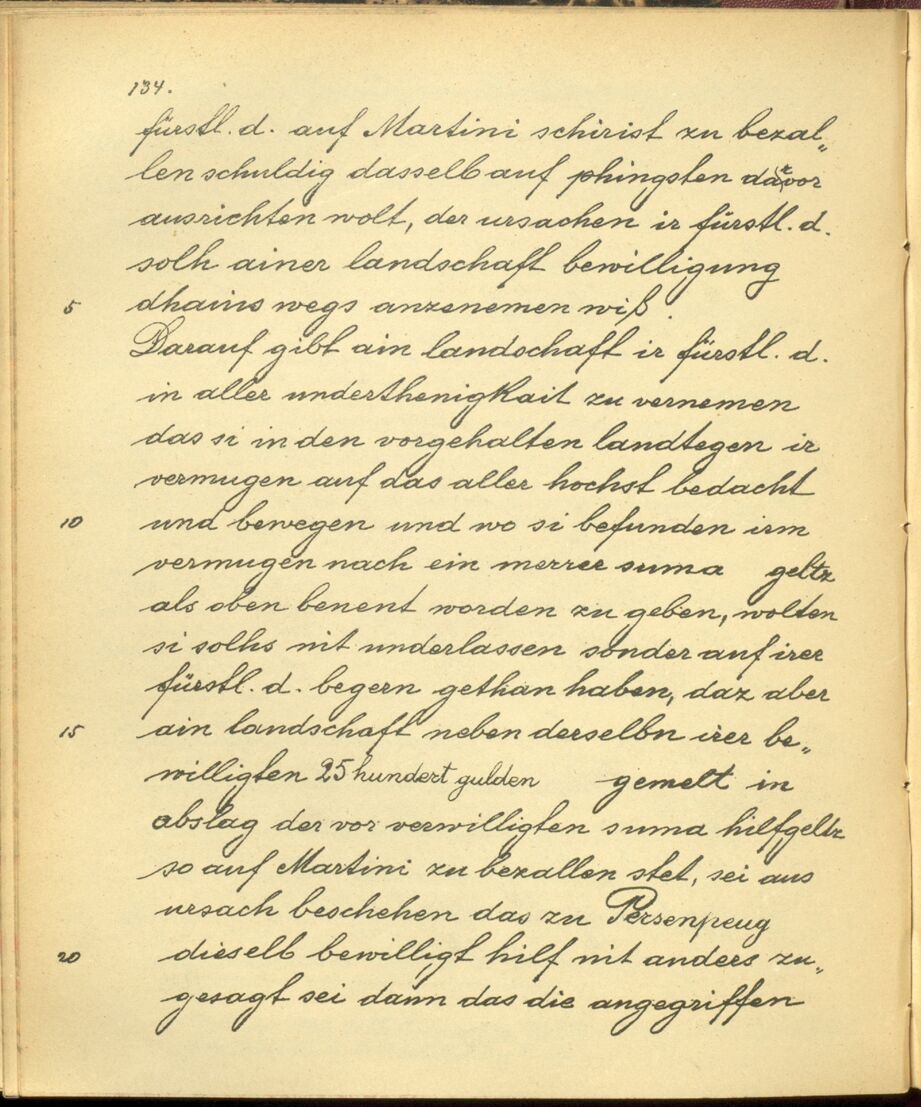 134.
fürstl. d. auf Martini schirist zu bezal„
len schuldig dasselb auf phingsten darvor
ausrichten wolt, der ursachen ir fürstl. d.
solh ainer landschaft bewilligung
5 dhains wegs anzenemen wiß.
Darauf gibt ain landschaft ir fürstl. d.
in aller underthenigkait zu vernemen
das si in den vorgehalten landtegen ir
vermugen auf das aller hochst bedacht
10 und bewegen und wo si befunden irm
vermugen nach ein merrer suma geltz
als oben benent worden zu geben, wolten
si solhs nit underlassen sonder auf irer
fürstl. d. begern gethan haben, daz aber
15 ain landschaft neben derselbn irer be„
willigten 25 hundert gulden gemelt in
abslag der vor verwilligten suma hilfgeltz
so auf Martini zu bezallen stet, sei aus
ursach beschehen das zu Persenpeug
20 dieselb bewilligt hilf nit anders zu„
gesagt sei dann das die angegriffen